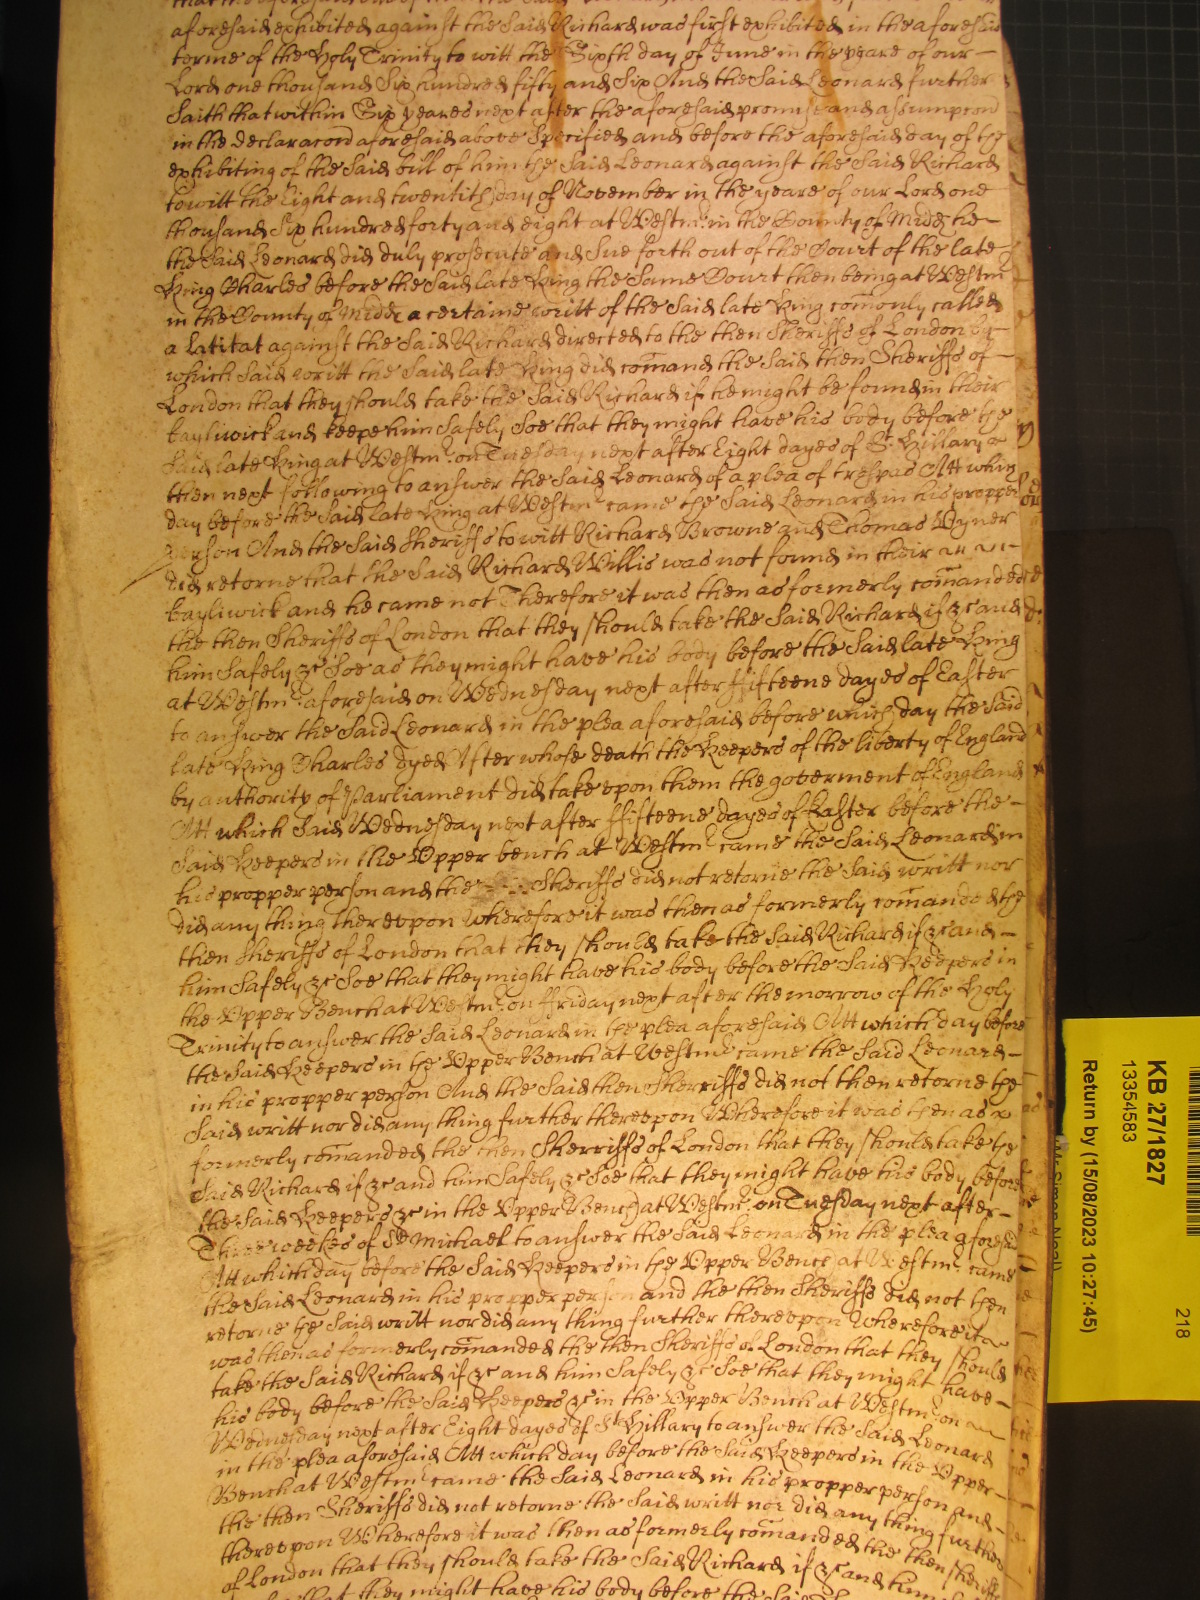 aforesaid exhibited against the Said Richard was first exhibited in the aforesaid
terme of the Holy Trinity to witt the Sixth day of June in the yeare of our
Lord one thousand Six hundred fifty and Six And the Said Leonard further
Saith that within Six yeares next after the aforesaid promise and assumpcon
in the declaracon aforesaid above Specified and before the aforesaid day of the
exhibiting of the Said bill of him the Said Leonard against the Said Richard
to witt the Eight and twentith day of November in the yeare of our Lord one
thousand Six hundred forty and eight at Westmr in the County of Midd he
the Said Leonard did duly prosecute and Sue forth out of the Court of the late
King Charles before the Said late King the Same Court then being at Westmr
in the County of Midd a certaine writt of the Said late King comonly called
a latitat against the Said Richard directed to the then Sheriffs of London by
which Said writt the Said late King did comand the Said then Sheriffs of
London that they should take the Said Richard if he might be found in their
bayliwick and keepe him Safely Soe that they might have his body before the
Said late King at Westmr on Tuesday next after Eight dayes of St Hillary
then next following to answer the Said Leonard of a plea of trespas Att which
day before the Said late King at Westmr came the Said Leonard in his propper
person And the Said Sheriffs to witt Richard Browne and Thomas Vyner
did retorne that the Said Richard Willis was not found in their
bayliwick and he came not Therefore it was then as formerly comanded
the then Sheriffs of London that they should take the Said Richard if &c and
him Safely &c Soe as they might have his body before the Said late King
at Westmr aforesaid on Wednesday next after ffifteene dayes of Easter
to answer the Said Leonard in the plea aforesaid before which day the Said
late King Charles dyed After whose death the Keepers of the liberty of England
by authority of Parliament did take upon them the goverment of England
Att which Said Wednesday next after ffifteene dayes of Easter before the
Said Keepers in the Upper bench at Westmr came the Said Leonard in
his propper person and the Sheriffs did not retorne the Said writt nor
did any thing thereupon Wherefore it was then as formerly comanded the
then Sheriffs of London that they should take the Said Richard if &c and
him Safely &c Soe that they might have his body before the Said Keepers in
the Upper Bench at Westmr on ffriday next after the morrow of the Holy
Trinity to answer the Said Leonard in the plea aforesaid Att which day before
the Said Keepers in the Upper Bench at Westmr came the Said Leonard
in his propper person And the Said then Sherriffs did not then retorne the
Said writt nor did any thing further thereupon Wherefore it was then as
formerly comanded the then Sherriffs of London that they should take the
Said Richard if &c and him Safely &c Soe that they might have his body before
the Said Keepers &c in the Upper Bench at Westmr on Tuesday next after
Three weekes of St Michael to answer the Said Leonard in the plea aforesaid
Att which day before the Said Keepers in the Upper Bench at Westmr came
the Said Leonard in his propper person and the then Sheriffs did not then
retorne the Said writt nor did any thing further thereupon Wherefore it
was then as formerly comanded the then Sheriffs of London that they should
take the Said Richard if &c and him Safely &c Soe that they might have
his body before the Said Keepers &c in the Upper Bench at Westmr on
Wednesday next after Eight dayes of St Hillary to answer the Said Leonard
in the plea aforesaid Att which day before the Said Keepers in the Upper
Bench at Westmr came the Said Leonard in his propper person and
the then Sheriffs did not retorne the Said writt nor did any thing further
thereupon Wherefore it was then as formerly comanded the then Sheriffs
of London that they should take the Said Richard if &c and him
that they might have his body before the Said
KB 27/1827
13354583
Return by (15/08/2023 10:27:45)
218